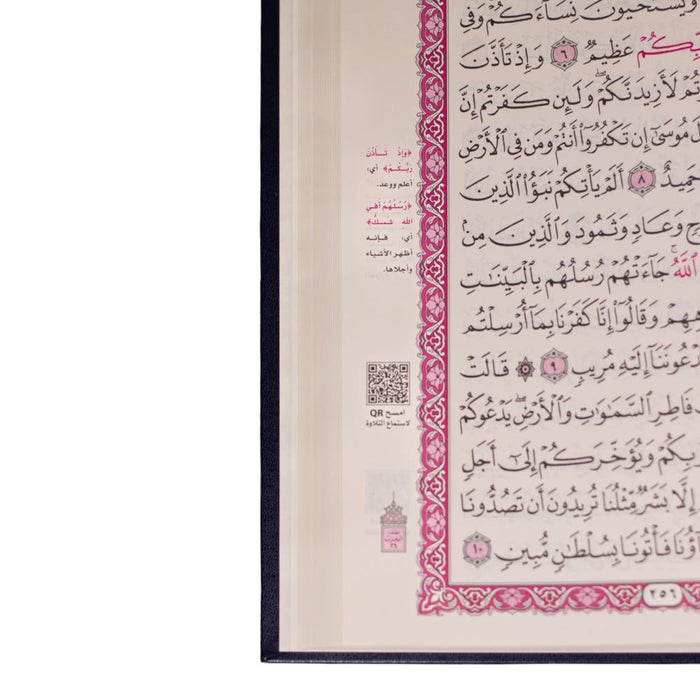 وَيَسْتَحْيُونَ نِسَآءَكُمْ وَفِي
رَّبِّكُمْ عَظِيمٌ ٦ وَإِذْ تَأَذَّنَ
تُمْ لَأَزِيدَنَّكُمْ ۖ وَلَئِن كَفَرْتُمْ إِنَّ
لَ مُوسَىٰٓ إِن تَكْفُرُوٓا۟ أَنتُمْ وَمَن فِى ٱلْأَرْضِ
حَمِيدٌ ٨ أَلَمْ يَأْتِكُمْ نَبَؤُا۟ ٱلَّذِينَ
حٍ وَعَادٍ وَثَمُودَ وَٱلَّذِينَ مِنۢ
ٱللَّهُ ۚ جَآءَتْهُمْ رُسُلُهُم بِٱلْبَيِّنَـٰتِ
هِهِمْ وَقَالُوٓا۟ إِنَّا كَفَرْنَا بِمَآ أُرْسِلْتُم
دْعُونَنَآ إِلَيْهِ مُرِيبٍ ٩ ۞ قَالَتْ
فَاطِرِ ٱلسَّمَـٰوَٰتِ وَٱلْأَرْضِ ۖ يَدْعُوكُمْ
بِكُمْ وَيُؤَخِّرَكُمْ إِلَىٰٓ أَجَلٍ
إِلَّا بَشَرٌ مِّثْلُنَا تُرِيدُونَ أَن تَصُدُّونَا
آؤُنَا فَأْتُونَا بِسُلْطَـٰنٍ مُّبِينٍ ١٠
٢٥٦
﴿وَإِذْ تَأَذَّنَ
رَبُّكُمْ﴾ أي:
أعلم ووعد.
﴿رُسُلُهُمْ أَفِي
اللهِ شَكٌّ﴾
أي: فإنه
أظهر الأشياء
وأجلاها.
امسح QR
لاستماع التلاوة
٢٦